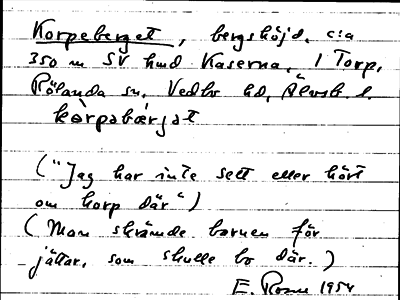 Korpeberget, bergshöjd, c:a
350 m SV hmd Kaserna, 1 Torp,
Rölanda sn, Vedbo hd, Älvsb. l.
kòrpəbæ̀rjət
("Jag har inte sett eller hört
om korp där")
(Man skrämde barnen för
jättar, som skulle bo där.)
E. Rosm 1954